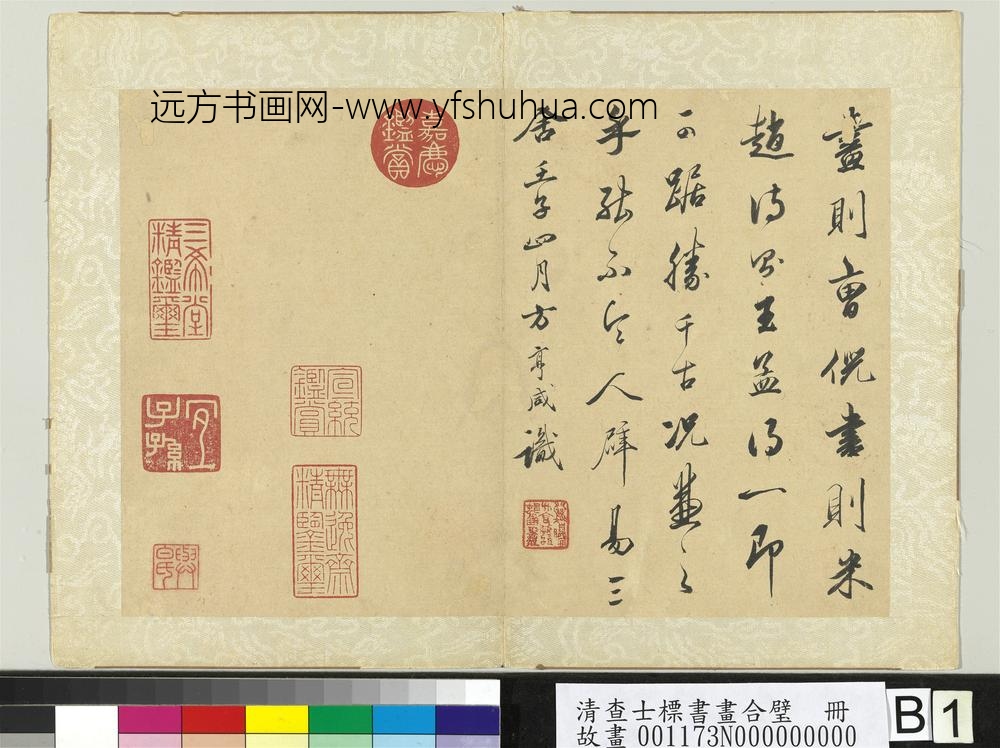 远方书画网-www.yfshuhua.com
畫則曹倪書則米
趙詩則王孟得一即
可踞勝千古況兼之
乎能不令人辟易三
舍壬子四月方亨咸識
嘉慶鑑賞
三希堂精鑑璽
宜子孫
宣統鑑賞
無逸齋精鑒璽
清查士標書畫合璧 冊
故畫 001173N000000000
B 1